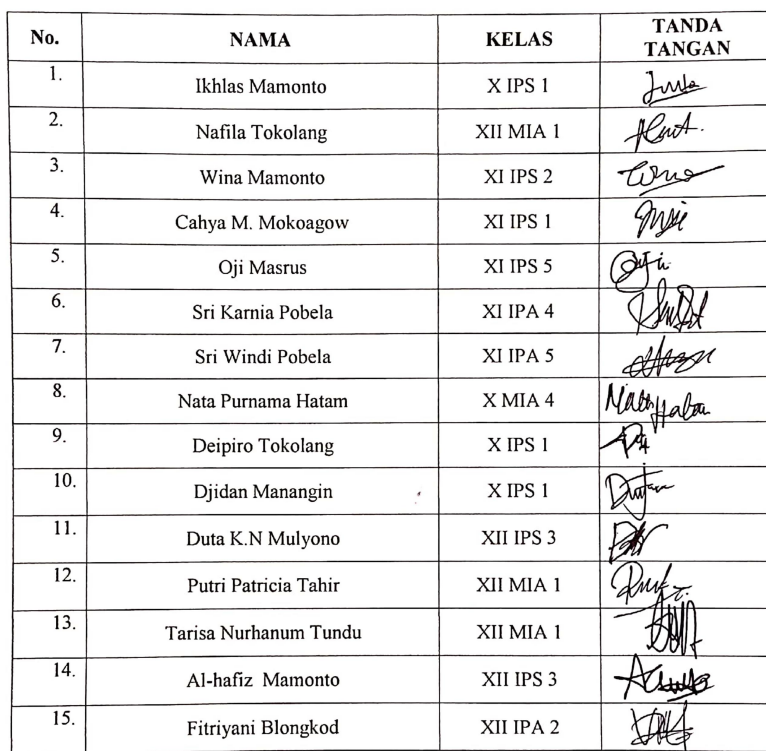 No. NAMA KELAS TANDA TANGAN
1. Ikhlas Mamonto X IPS 1
2. Nafila Tokolang XII MIA 1
3. Wina Mamonto XI IPS 2
4. Cahya M. Mokoagow XI IPS 1
5. Oji Masrus XI IPS 5
6. Sri Karnia Pobela XI IPA 4
7. Sri Windi Pobela XI IPA 5
8. Nata Purnama Hatam X MIA 4
9. Deipiro Tokolang X IPS 1
10. Djidan Manangin X IPS 1
11. Duta K.N Mulyono XII IPS 3
12. Putri Patricia Tahir XII MIA 1
13. Tarisa Nurhanum Tundu XII MIA 1
14. Al-hafiz Mamonto XII IPS 3
15. Fitriyani Blongkod XII IPA 2